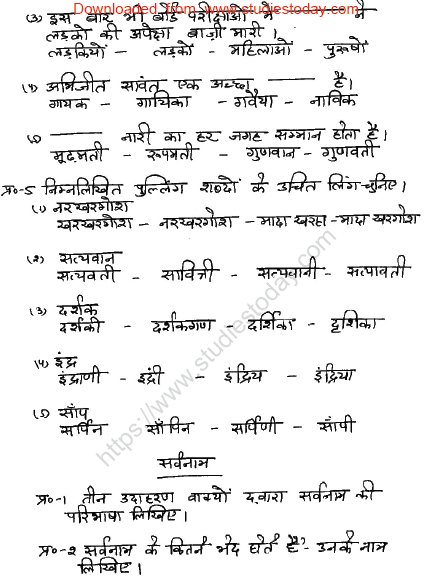 Downloaded from www.studiestoday.com
(3) इस बार भी बोर्ड परीक्षाओं में ——— ने
लड़कों की अपेक्षा बाज़ी मारी।
लड़कियों - लड़कों - महिलाओं - पुरूषों
(4) अभिजीत सावंत एक अच्छा ——— है।
गायक - गायिका - गवैया - नाविक
(5) ——— नारी का हर जगह सम्मान होता है।
मूढ़मती - रूपमती - गुणवान - गुणवती
प्र०-5 निम्नलिखित पुल्लिंग शब्दों के उचित लिंग चुनिए।
(1) नरखरगोश
खरखरगोश - नरखरगोश - मादा खरहा - मादा खरगोश
(2) सत्यवान
सत्यवती - सावित्री - सत्यवानी - सत्यावती
(3) दर्शक
दर्शकी - दर्शकगण - दर्शिका - दृशिका
(4) इंद्र
इंद्राणी - इंद्री - इंद्रिय - इंद्रिया
(5) साँप
सर्पिन साँपिन - सर्पिणी - साँपी
सर्वनाम
प्र०-1 तीन उदाहरण वाक्यों द्वारा सर्वनाम की
परिभाषा लिखिए।
प्र०-२ सर्वनाम के कितने भेद होते हैं - उनके नाम
लिखिए।
https://www.studiestoday.com